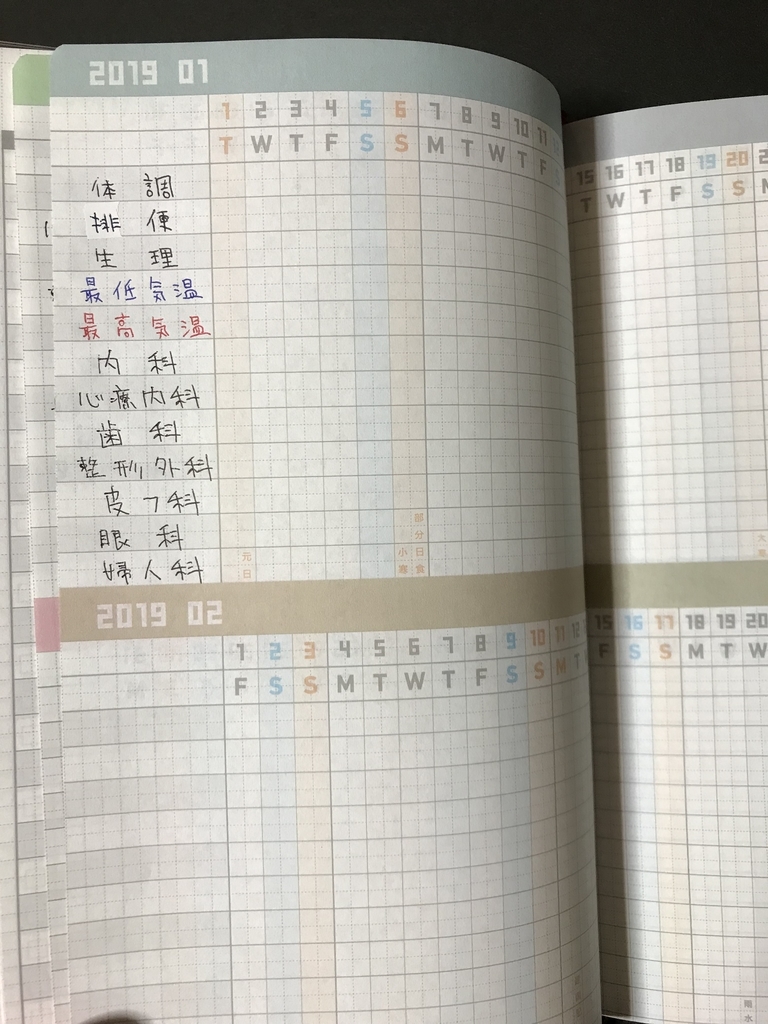 2019 01
1 2 3 4 5 6 7 8 9 10 11
T W T F S S M T W T F
15 16 17 18 19 20
T W T F S S M
体調
排便
生理
最低気温
最高気温
内科
心療内科
歯科
整形外科
皮フ科
眼科
婦人科
元日
小寒
部分日食
2019 02
1 2 3 4 5 6 7 8 9 10 11 12
F S S M T W T F S S M T
15 16 17 18 19 20
F S S M T W
雨水